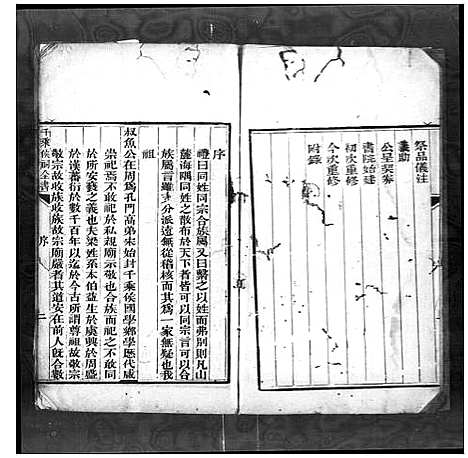 祭品儀注
襄助
公呈契券
書院始建
初次重修
今次重修
附錄
序
禮曰同姓同宗合族屬又曰繫之以姓而弗別則凡山
陬海隅同姓之散布於天下者皆可以同宗言可以合
族屬言雖分派遠無從稽核而其為一家無疑也我
祖
叔魚公在周為孔門高弟宋始封千乘侯國學鄉學歷代咸
崇祀焉不敢於私視廟示也合族而祀之不敢同
於所安褻之義也夫梁姓系本伯益生於虞興於周盛
於漢蕃衍於數千百年以迄於今古所謂尊祖故敬宗
敬宗故收族收族故宗廟嚴者其道安在前人旣合數
千乘侯祠全書
序